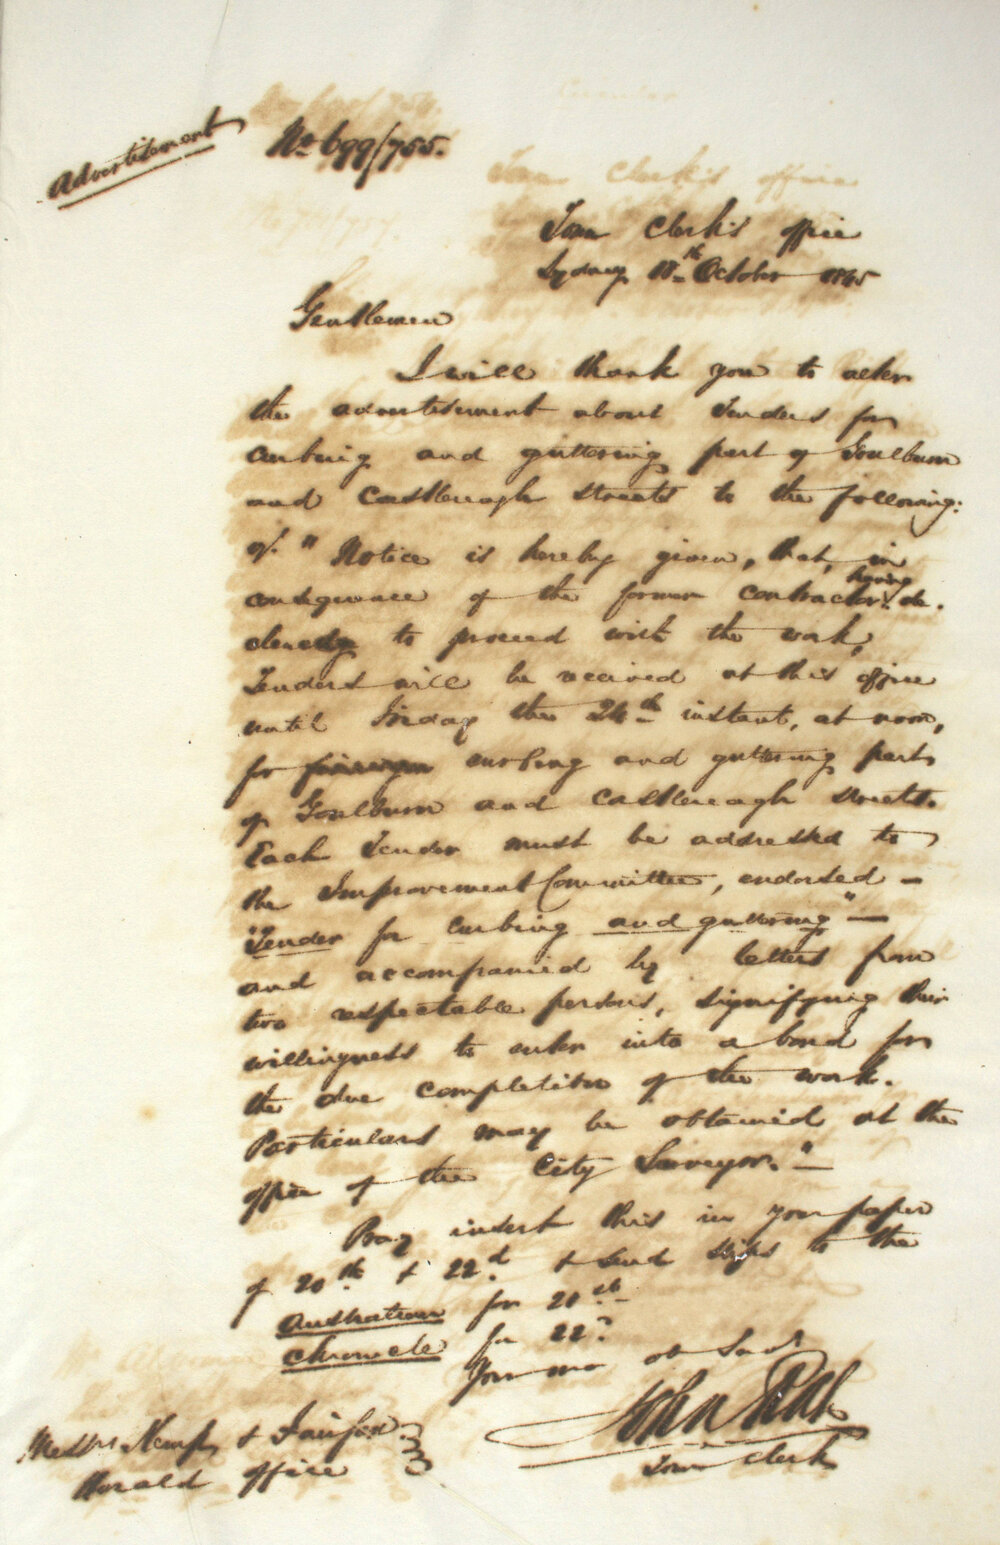 Advertisement
No 699/755.
Town Clerk's office
Sydney 18th October 1845
Gentlemen
I will thank you to alter
the advertisement about Tenders for
curbing and guttering part of Goulburn
and Castlereagh streets to the following:
"Notice is hereby given, that, in
consequence of the former contractor having de-
clined to proceed with the work,
Tenders will be received at this office
until Friday the 24th instant, at noon,
for curbing and guttering parts
of Goulburn and Castlereagh streets.
Each Tender must be addressed to
the Improvement Committee, endorsed —
"Tender for curbing and guttering" —
and accompanied by letters from
two respectable persons, signifying their
willingness to enter into a bond for
the due completion of the work.
Particulars may be obtained at the
office of the City Surveyor." —
Pray insert this in your paper
of 20th & 22d & send slips to the
Australian for 21st
Chronicle for 22d
Your mo ob Servt
John Rae
Town Clerk
Messrs Kemp & Fairfax
Herald office